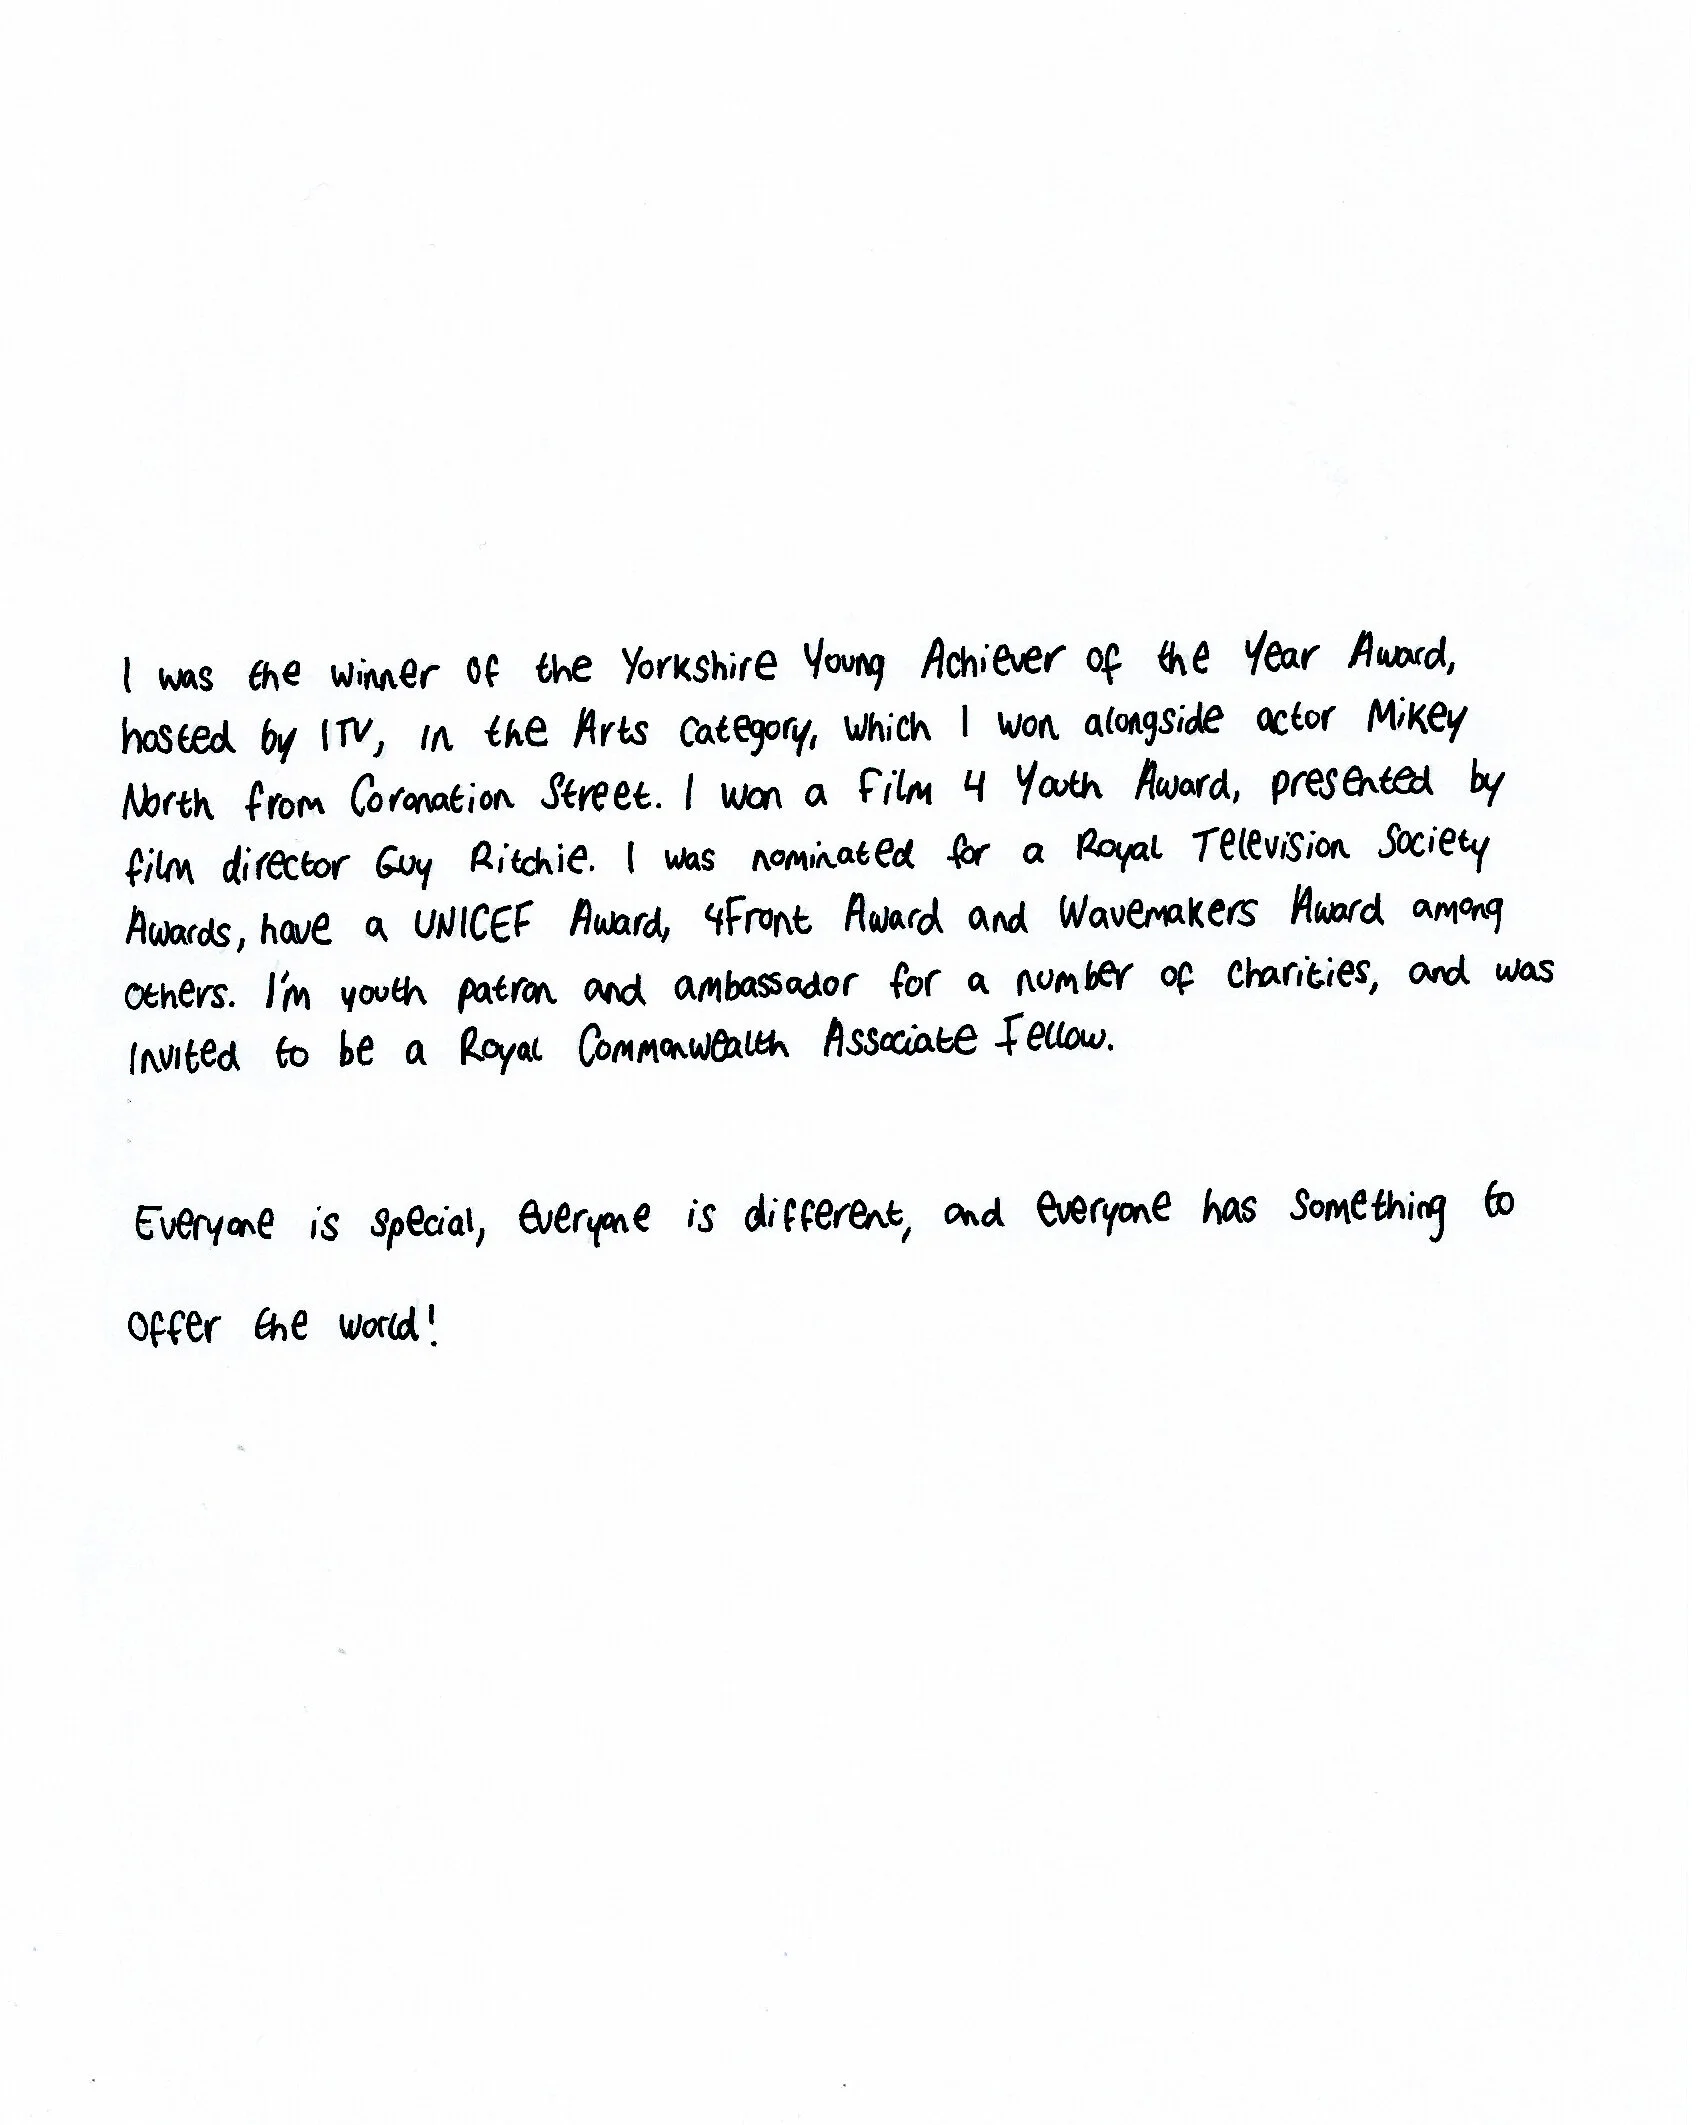 I was the winner of the Yorkshire Young Achiever of the Year Award,
hosted by ITV, in the Arts category, which I won alongside actor Mikey
North from Coronation Street. I won a Film 4 Youth Award, presented by
film director Guy Ritchie. I was nominated for a Royal Television Society
Awards, have a UNICEF Award, 4Front Award and Wavemakers Award among
others. I'm youth patron and ambassador for a number of charities, and was
invited to be a Royal Commonwealth Associate Fellow.
Everyone is special, everyone is different, and everyone has something to
offer the world!